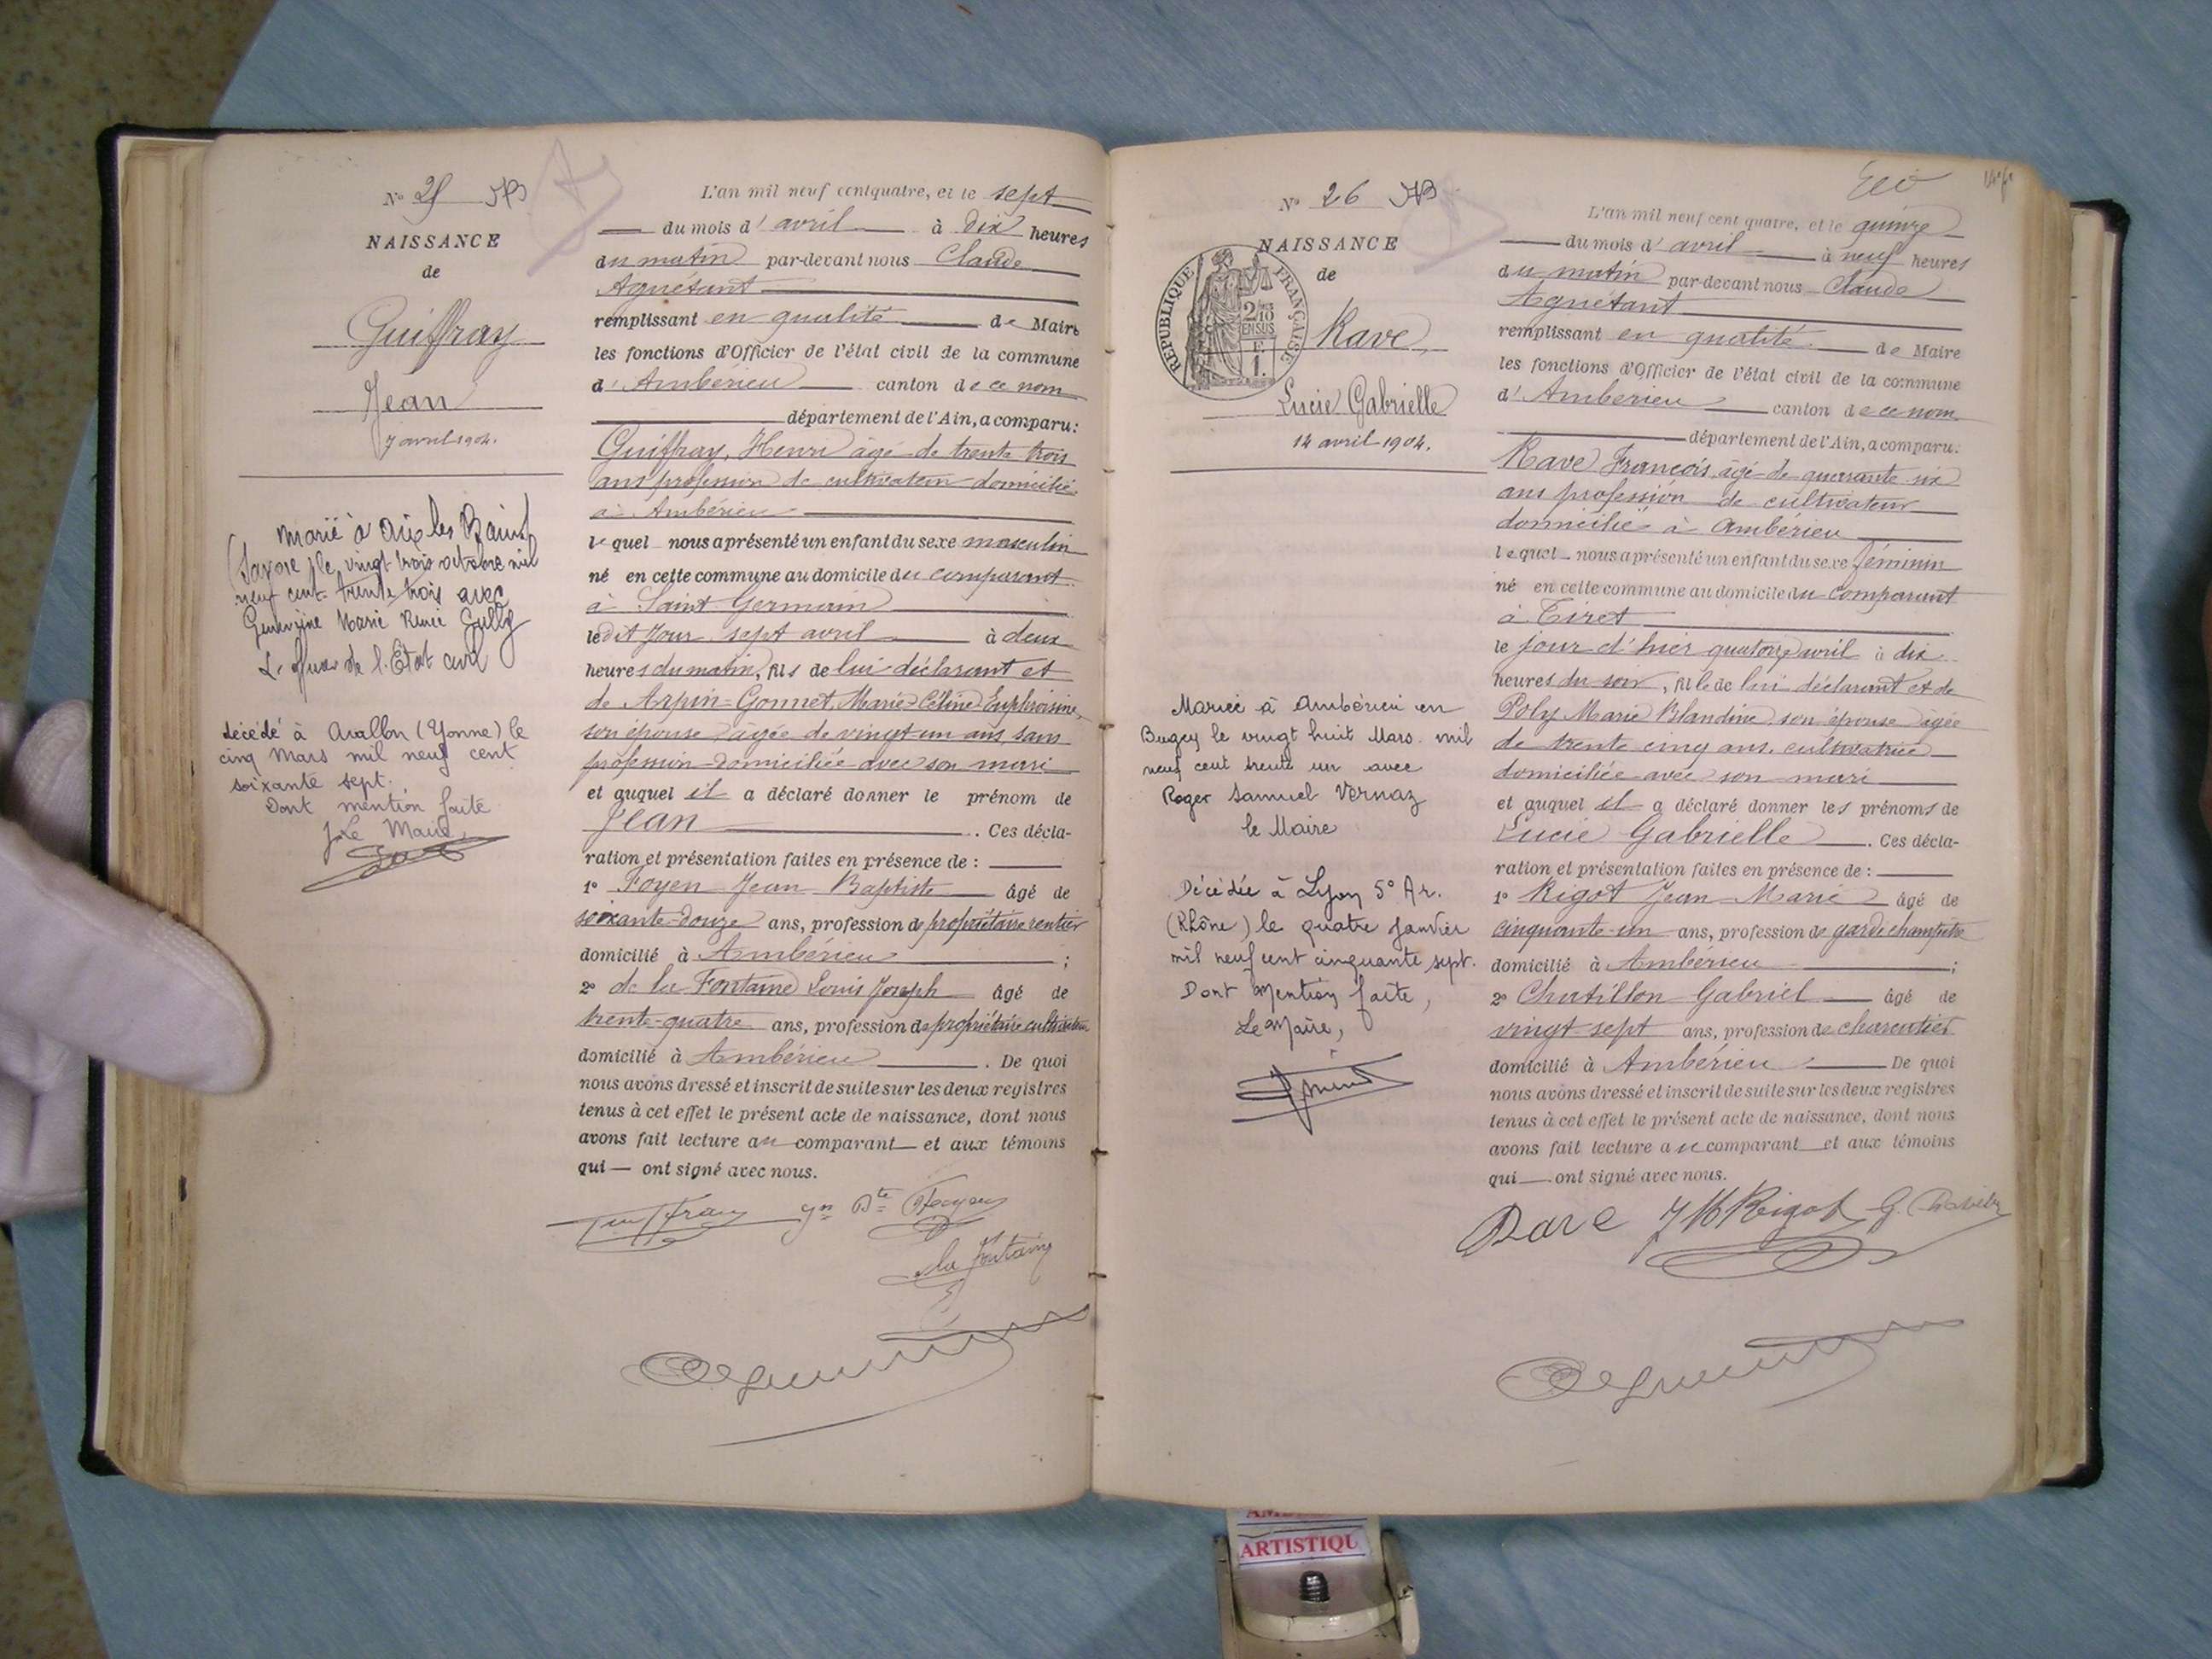 N° 25
NAISSANCE
de
Guiffray
Jean
7 avril 1904.
Marié à Aix les Bains
(Savoie) le vingt trois octobre mil
neuf cent trente trois avec
Geneviève Marie Renée
L'Officier de l'Etat civil
décédé à Avallon (Yonne) le
cinq Mars mil neuf cent
soixante sept.
Dont mention faite
Le Maire,
L'an mil neuf cent quatre, et le sept
du mois d'avril à dix heures
du matin par-devant nous Claude
Aguétant
remplissant en qualité de Maire
les fonctions d'Officier de l'état civil de la commune
d'Ambérieu canton de ce nom
département de l'Ain, a comparu:
Guiffray, Henri âgé de trente trois
ans profession de cultivateur domicilié
à Ambérieu
lequel nous a présenté un enfant du sexe masculin
né en cette commune au domicile du comparant
à Saint Germain
ledit jour sept avril à deux
heures du matin, fils de lui déclarant et
de Arpin-Gonnet, Marie Céline Euphrosine,
son épouse âgée de vingt-un ans, sans
profession domiciliée avec son mari
et auquel il a déclaré donner le prénom de
Jean. Ces décla-
ration et présentation faites en présence de :
1° Foyen Jean Baptiste âgé de
soixante-douze ans, profession de propriétaire rentier
domicilié à Ambérieu ;
2° de la Fontaine Louis Joseph âgé de
trente-quatre ans, profession de propriétaire cultivateur
domicilié à Ambérieu. De quoi
nous avons dressé et inscrit de suite sur les deux registres
tenus à cet effet le présent acte de naissance, dont nous
avons fait lecture au comparant et aux témoins
qui ont signé avec nous.
Guiffray Jn Bte Foyen
de la Fontaine
N° 26
NAISSANCE
de
RÉPUBLIQUE FRANÇAISE
2/10
EN SUS
F.
1.
Rave
Lucie Gabrielle
14 avril 1904.
Mariée à Ambérieu en
Bugey le vingt huit Mars mil
neuf cent trente un avec
Roger Samuel Vernaz
le Maire
Décédée à Lyon 5° Ar.
(Rhône) le quatre Janvier
mil neuf cent cinquante sept.
Dont Mention faite,
Le Maire,
L'an mil neuf cent quatre, et le quinze
du mois d'avril à neuf heures
du matin par-devant nous Claude
Aguétant
remplissant en qualité de Maire
les fonctions d'Officier de l'état civil de la commune
d'Ambérieu canton de ce nom
département de l'Ain, a comparu:
Rave François, âgé de quarante six
ans profession de cultivateur
domicilié à Ambérieu
lequel nous a présenté un enfant du sexe féminin
né en cette commune au domicile du comparant
à Tiret
le jour d'hier quatorze avril à dix
heures du soir, fille de lui déclarant et de
Poly Marie Blandine son épouse âgée
de trente cinq ans, cultivatrice
domiciliée avec son mari
et auquel il a déclaré donner les prénoms de
Lucie Gabrielle. Ces décla-
ration et présentation faites en présence de :
1° Rigot Jean Marie âgé de
cinquante-un ans, profession de garde champêtre
domicilié à Ambérieu ;
2° Chatillon Gabriel âgé de
vingt-sept ans, profession de charcutier
domicilié à Ambérieu De quoi
nous avons dressé et inscrit de suite sur les deux registres
tenus à cet effet le présent acte de naissance, dont nous
avons fait lecture au comparant et aux témoins
qui ont signé avec nous.
Rave JM Rigot
ARTISTIQU